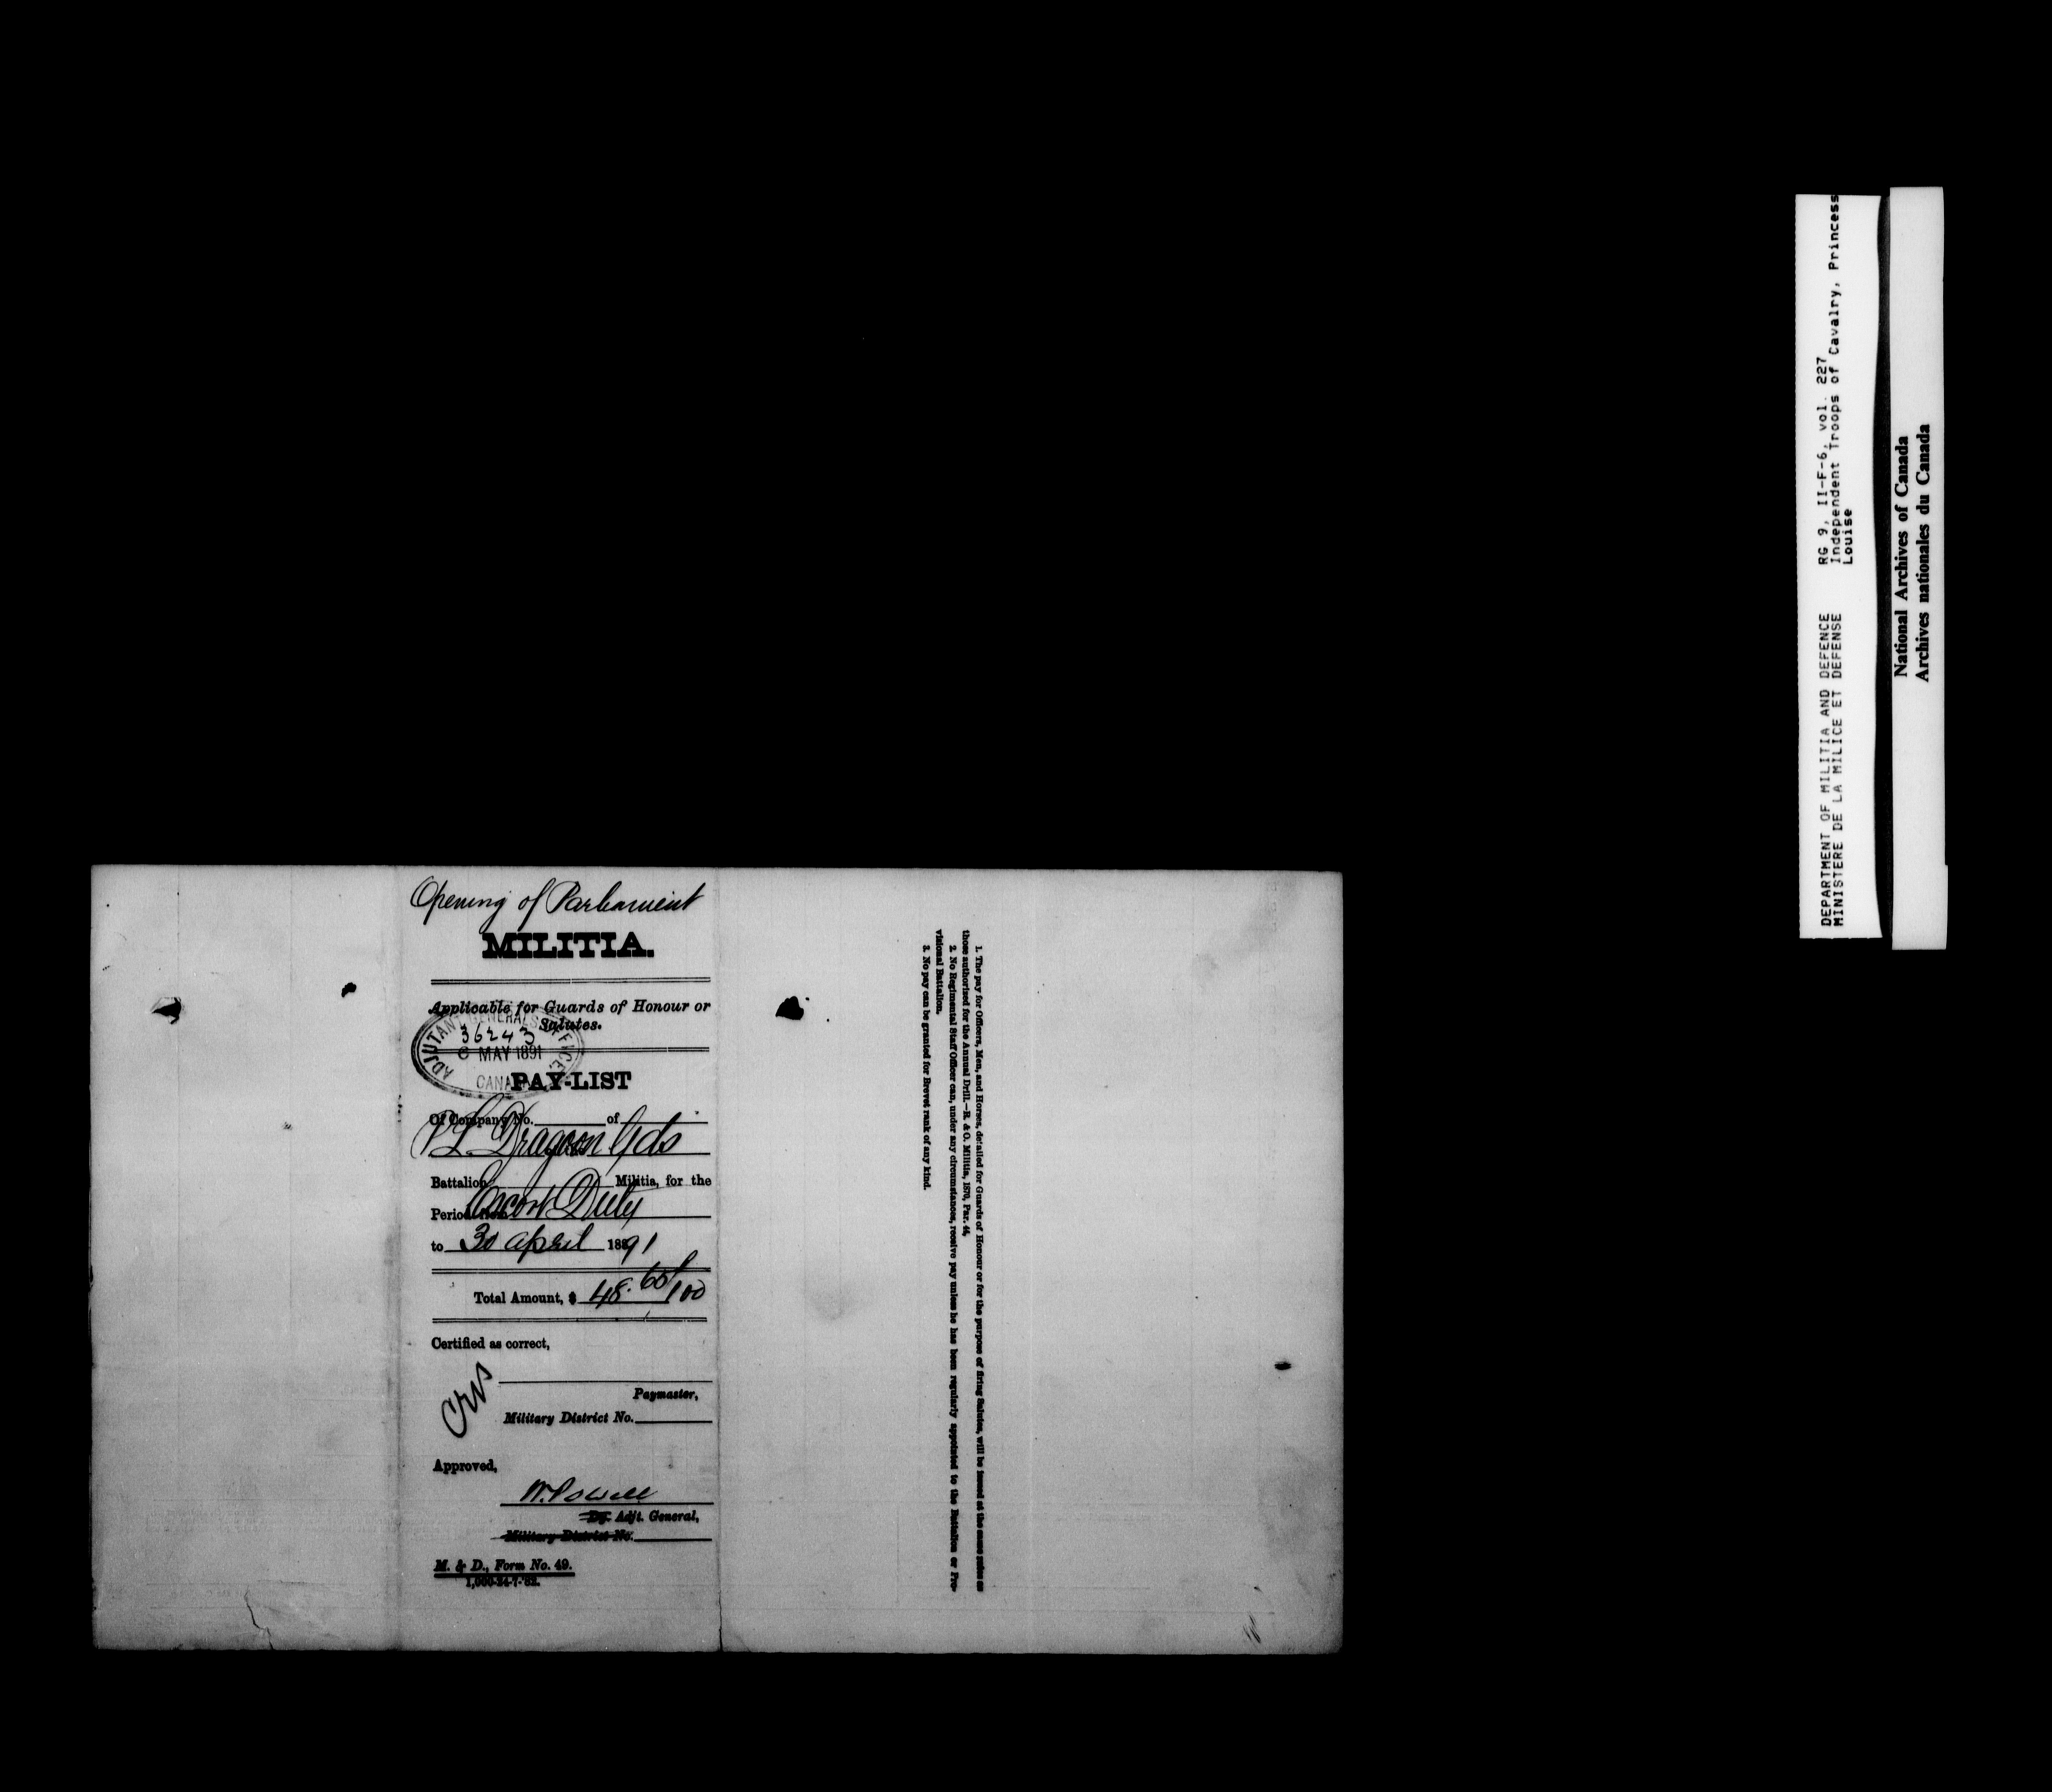 Opening of Parliament
MILITIA.
Applicable for Guards of Honour or
Salutes.
ADJUTANT GENERAL'S OFFICE,
36243
6 MAY 1891
CANADA
PAY-LIST
Of Company No. of
P L Dragoon Gds
Battalion Militia, for the
Period from
Escort Duty
to 30 April 1891
Total Amount, $ 48. 65/100
Certified as correct,
Paymaster,
Military District No.
Approved,
W. Powell
Dy. Adjt. General,
Military District No.
M. & D., Form No. 49.
1,000-24-7-'82.
1. The pay for Officers, Men, and Horses, detailed for Guards of Honour or for the purpose of firing Salutes, will be issued at the same rates as
those authorised for the Annual Drill.—R. & O. Militia, 1870, Par. 44.
2. No Regimental Staff Officer can, under any circumstances, receive pay unless he has been regularly appointed to the Battalion or Pro-
visional Battalion.
3. No pay can be granted for Brevet rank of any kind.
DEPARTMENT OF MILITIA AND DEFENCE
MINISTERE DE LA MILICE ET DEFENSE
RG 9, II-F-6, vol. 227
Independent Troops of Cavalry, Princess
Louise
National Archives of Canada
Archives nationales du Canada